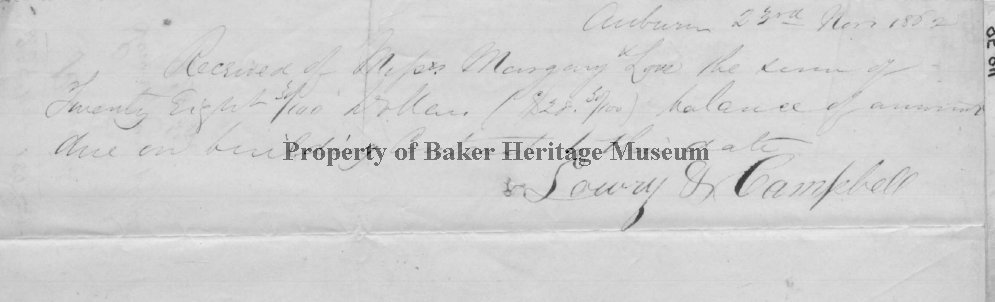 Auburn 23rd Nov 1862
Received of Messrs Margery & Love the sum of
Twenty Eight 50/100 Dollars ($28.50/100) balance of amount
due on building to this date
Property of Baker Heritage Museum
Lowry & Campbell